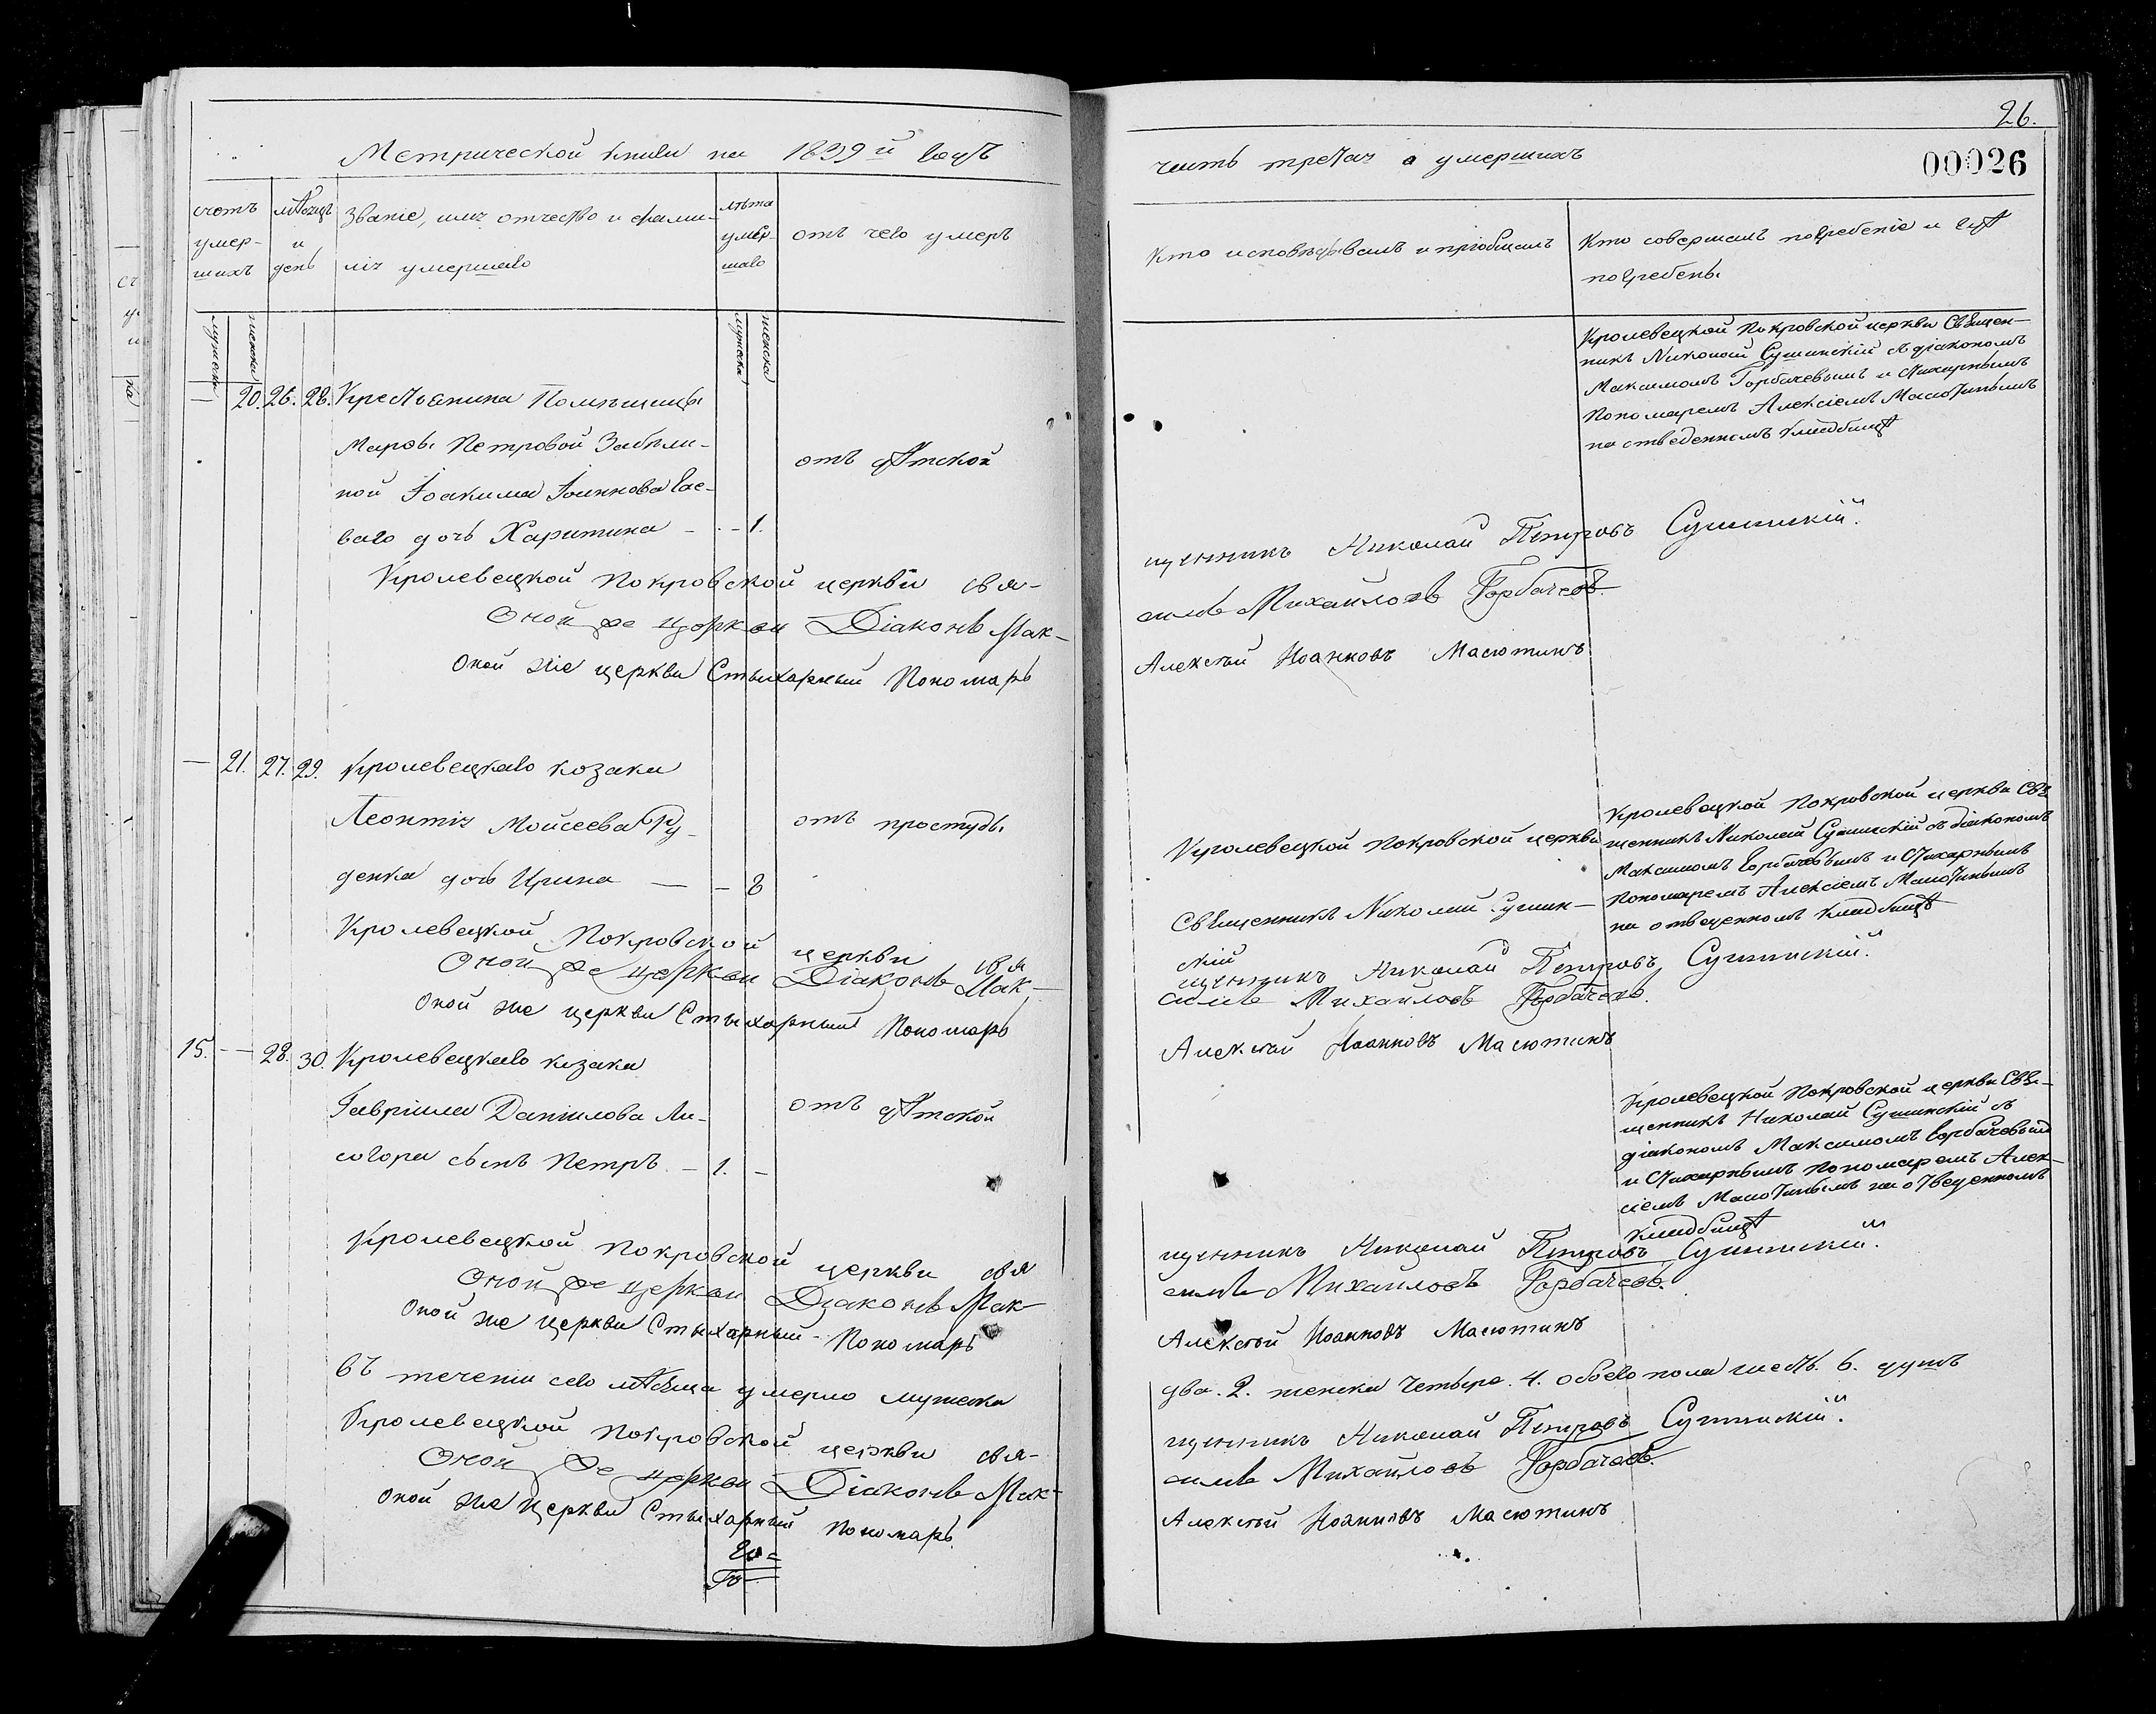 26.
00026
Метрической книги на 1839й годъ
часть третая о умершихъ
счетъ умер-шихъ
мѣсяцъ и день
Званіе, имя отчество и фами-
лія умершаго
лѣта умер-шаго
отъ чего умеръ
Кто исповѣдывалъ и пріобщалъ
Кто совершалъ погребеніе и гдѣ
погребены
мужеска
женска
мужеска
женска
— 20. 26. 28. Крестьянина Помѣщицы
Марѳы Петровой Забѣли-
ной Іоакима Іоаннова Гае-
ваго дочь Харитина — - 1.
отъ дѣтской
Кролевецкой Покровской церкви Свѣщен-
никъ Николай Сушинскій съ діакономъ
Максимомъ Горбачевымъ и Стихарнымъ
Пономаремъ Алексіемъ Масютинымъ
на отведенномъ кладбищѣ
Кролевецкой Покровской церкви свя-
щенникъ Николай Петровъ Сушинскій.
Оной же церкви Діаконъ Мак-
симъ Михайловъ Горбачевъ.
Оной же церкви Стыхарный Пономарь
Алексѣй Иоанновъ Масютинъ
— 21. 27. 29. Кролевецкаго козака
Леонтія Мойсеева Ру-
денка дочь Ирина — - 8
отъ простуды
Кролевецкой Покровской церкви
Свѣщенникъ Николай Сушин-
скій
Кролевецкой Покровской церкви Свѣ
щенникъ Николай Сушинскій съ діакономъ
Максимомъ Горбачевымъ и Стихарнымъ
Пономаремъ Алексіемъ Масютинымъ
на отведенномъ кладбищѣ
Кролевецкой Покровской церкви свя
щенникъ Николай Петровъ Сушинскій.
Оной же церкви Діаконъ Мак-
симъ Михайловъ Горбачевъ.
Оной же церкви Стыхарный Пономарь
Алексѣй Иоанновъ Масютинъ
15. — 28. 30. Кролевецкаго козака
Гавріила Даніилова Ли-
согора сынъ Петръ. — 1. -
отъ дѣтской
Кролевецкой Покровской церкви Свѣ-
щенникъ Николай Сушинскій съ
діакономъ Максимомъ Горбачевымъ
и Стихарнымъ Пономаремъ Алек-
сіемъ Масютинымъ на отведенномъ
кладбищѣ
Кролевецкой Покровской церкви свя
щенникъ Николай Петровъ Сушинскій.
Оной же церкви Діаконъ Мак-
симъ Михайловъ Горбачевъ.
Оной же церкви Стыхарный Пономарь
Алексѣй Иоанновъ Масютинъ
Въ теченіи сего мѣсяца умерло мужеска
два. 2. женска четыре. 4. обоего пола шесть. 6. душъ
Кролевецкой Покровской церкви свя-
щенникъ Николай Петровъ Сушинскій.
Оной же церкви Діаконъ Мак-
симъ Михайловъ Горбачевъ.
Оной же церкви Стыхарный Пономарь
Алексѣй Иоанновъ Масютинъ